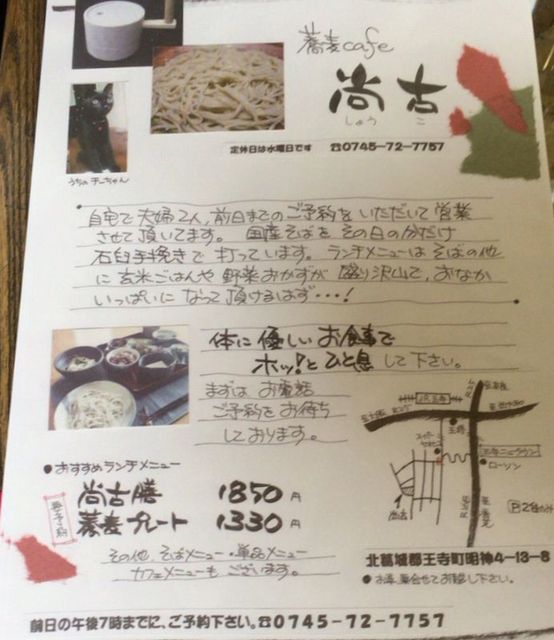 蕎麦cafe
尚古
しょうこ
定休日は水曜日です ☎0745-72-7757
うちの チーちゃん
自宅で 夫婦2人、前日までのご予約を いただいて 営業
させて頂いてます。 国産そばを その日の分だけ
石臼手挽きで 打っています。 ランチメニューは そばの他
に 玄米ごはんや 野菜おかずが 盛り沢山で、おなか
いっぱいに なって頂けるはず・・・!
体に 優しい お食事で
ホッ!と ひと息 して下さい。
まずは お電話
ご予約を お待ち
しております。
●おすすめランチメニュー
要予約
尚古膳 1850円
蕎麦プレート 1330円
その他 そばメニュー・単品メニュー
カフェメニューも ございます。
JR王寺
王寺ニュータウン
ローソン
尚古
P2台のみ
北葛城郡王寺町明神4-13-8
●お車、乗合せでお越し下さい。
前日の午後7時までに、ご予約下さい。☎0745-72-7757